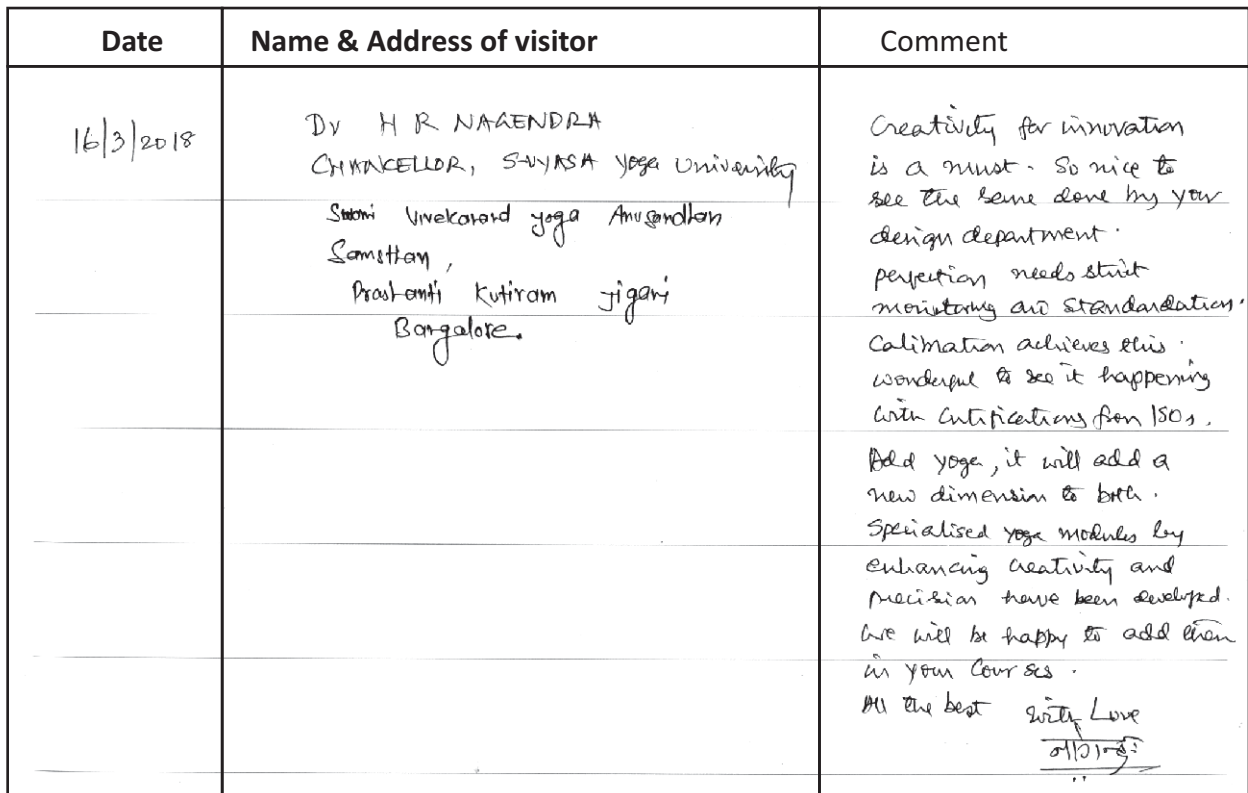 Date
Name & Address of visitor
Comment
16/3/2018
Dr H R NAGENDRA
CHANCELLOR, S-VYASA Yoga University
Swami Vivekanand yoga Anusandhan
Samsthan,
Prashanti Kutiram Jigani
Bangalore.
Creativity for innovation
is a must. So nice to
see the same done by your
design department.
perfection needs strict
monitoring and standardation.
Calibration achieves this.
wonderful to see it happening
with certifications from ISOs.
Add yoga, it will add a
new dimension to both.
Specialised yoga modules by
enhancing creativity and
precision have been developed.
We will be happy to add them
in your Courses.
All the best with Love